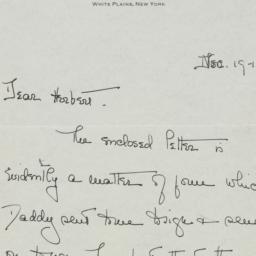 White Plains, New York
Dec. 19-
Dear Herbert.
The enclosed letter is
evidently a matter of form whic
Daddy sent me to sign & sen
on to you.